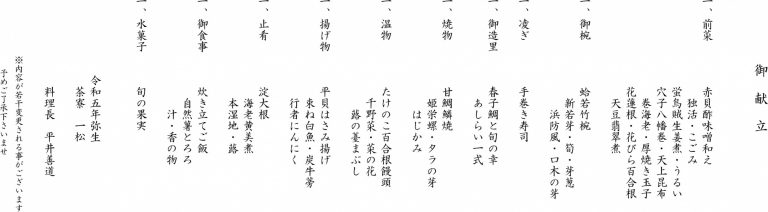 御献立
一、前菜
赤貝酢味噌和え
独活・こごみ
蛍烏賊生姜煮・うるい
穴子八幡巻・天上昆布
巻海老・厚焼き玉子
花蓮根・花びら百合根
天豆翡翠煮
一、御椀
蛤若竹椀
新若芽・筍・芽葱
浜防風・口木の芽
一、凌ぎ
手巻き寿司
一、御造里
春子鯛と旬の幸
あしらい一式
一、焼物
甘鯛鱗焼
姫栄螺・タラの芽
はじかみ
一、温物
たけのこ百合根饅頭
千野菜・菜の花
蕗の薹まぶし
一、揚げ物
平貝はさみ揚げ
束ね白魚・炭牛蒡
行者にんにく
一、止肴
淀大根
海老黄美煮
本湿地・蕗
一、御食事
炊き立てご飯
自然薯とろろ
汁・香の物
一、水菓子
旬の果実
令和五年弥生
茶寮 一松
料理長 平井善道
※内容が若干変更される事がございます
予めご了承下さいませ